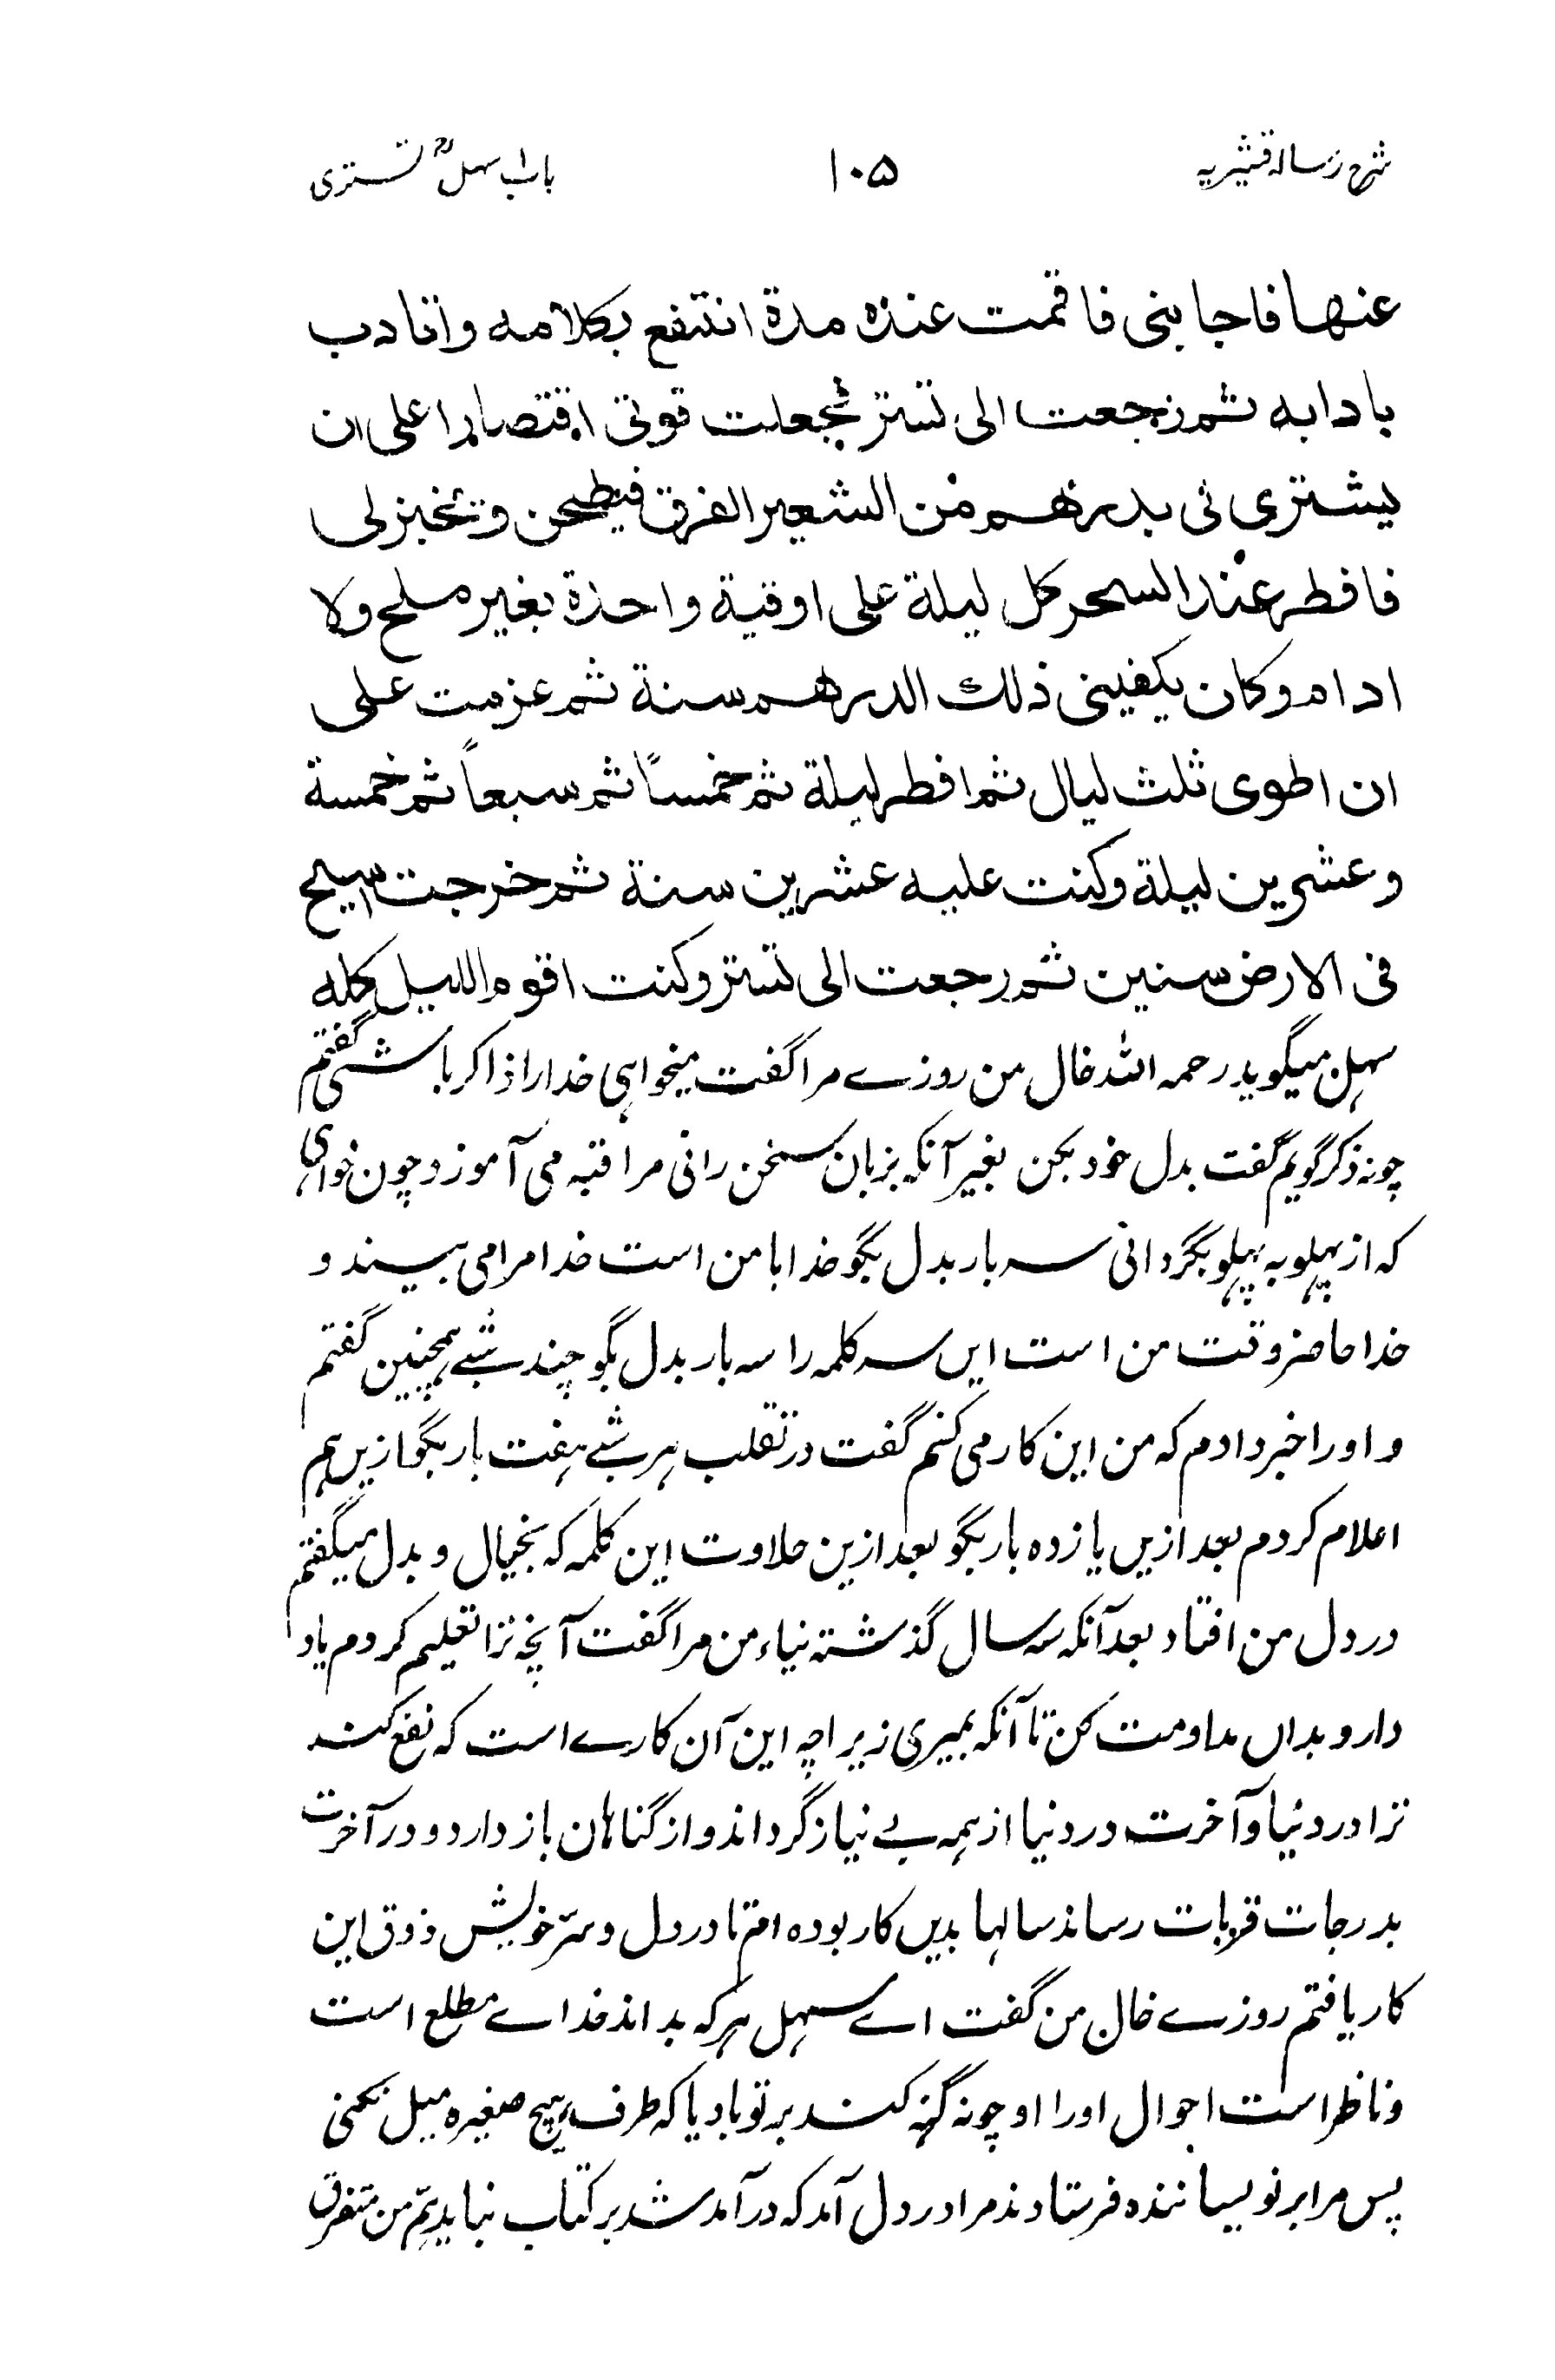 شرح رساله قشیریه ۱۰۵ باب سهل تستری
عنها فاجابنی فاقمت عنده مدة انتفع بکلامه واتادب
بادابه ثم رجعت الی تستر فجعلت قوتی اقتصارا علی ان
یشتری لی بدرهم من الشعیر الفرق فیطحن و یخبز لی
فافطر عند السحر کل لیلة علی اوقیة واحدة بغیر ملح ولا
ادام وکان یکفینی ذلك الدرهم سنة ثم عزمت علی
ان اطوی ثلث لیال ثم افطر لیلة ثم خمساً ثم سبعاً ثم خمسة
وعشرین لیلة وکنت علیه عشرین سنة ثم خرجت اسیح
فی الارض سنین ثم رجعت الی تستر وکنت اقوم اللیل کله
سهل میگوید رحمه الله خال من روزے مرا گفت میخواهی خدا را ذاکر باشی گفتم
چونه ذکر گویم گفت بدل خود بکن بغیر آنکه بزبان سخن رانی مراقبه می آموز و چون خواهی
که از پهلو به پهلو بگردانی سه بار بدل بگو خدا با من است خدا مرا می بیند و
خدا حاضر وقت من است ایں سه کلمه را سه بار بدل بگو چند شبے همچنین گفتم
و او را خبر دادم که من این کار می کنم گفت در تقلب هر شبے هفت بار بگو ازیں هم
اعلام کردم بعد ازیں یازده بار بگو بعد ازین حلاوت این کلمه که بخیال و بدل میگفتم
در دل من افتاد بعد آنکه سه سال گذشته نیاء من مرا گفت آنچه ترا تعلیم کردم یاد
دار و بداں مداومت کن تا آنکه بمیری زیراچه این آن کارے است که نفع کند
ترا در دنیا و آخرت در دنیا از همه بے نیاز گرداند و از گناهان باز دارد و در آخرت
بدرجات قربات رساند سالها بدیں کار بوده ام تا در دل و سرّ خویش ذوق این
کار یافتم روزے خال من گفت اے سهل هر که بداند خداے مطلع است
و ناظر است احوال او را او چونه گنه کند بر تو باد یا که طرف هیچ صغیره میل نکنی
پس مرا بر نویسانندہ فرستادند مرا در دل آمد که در آمد شد بر کتاب نباید همّ من متفرق